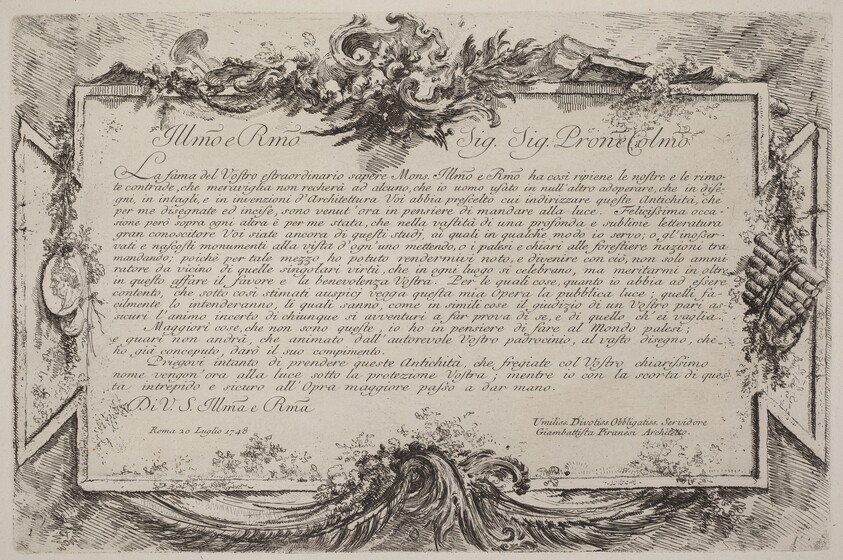 Illm̃o e Rm̃o Sig. Sig. Pron̄e Colm̃o
La fama del Voſtro eſtraordinario sapere Mons. Illm̃o e Rm̃o ha così ripiene le noſtre e le rimo-
te contrade, che meraviglia non recherà ad alcuno, che io uomo uſato in null'altro adoperare, che in diſe-
gni, in intagli, e in invenzioni d'Architettura Voi abbia preſcelto cui indirizzare queſte Antichità, che
per me disegnate ed inciſe, sono venut'ora in pensiere di mandare alla luce. Feliciſsima occa-
sione però sopra ogni altra è per me stata, che nella vaſtità di una profonda e sublime letteratura
gran conoscitore Voi siate ancora di queſti studj, ai quali in qualche modo io servo; o gl'inoſser-
vati e naſcoſti monumenti alla viſta d'ogn'uno mettendo, o i palesi e chiari alle foreſtiere nazioni tra
mandando; poichè per tale mezzo ho potuto rendermivi noto, e divenire con ciò, non solo ammi
ratore da vicino di quelle singolari virtù, che in ogni luogo si celebrano, ma meritarmi in oltre
in queſto affare il favore e la benevolenza Voſtra. Per le quali cose, quanto io abbia ad eſsere
contento, che sotto così stimati auspicj vegga queſta mia Opera la pubblica luce; quelli fa-
cilmente lo intenderanno, li quali sanno, come in simili cose il giudizio di un Voſtro pari as-
sicuri l'animo incerto di chiunque si avventuri a far prova di se, e di quello ch'ei vaglia.
Maggiori cose, che non sono queſte, io ho in pensiere di fare al Mondo palesi;
e quari non andrà, che animato dall'autorevole Voſtro padrocinio, al vaſto disegno, che
ho già conceputo, darò il suo compimento.
Priegovi intanto di prendere queste Antichità, che fregiate col Voſtro chiariſsimo
nome vengon'ora alla luce sotto la protezione Voſtra; mentre io con la scorta di ques
ta intrèpido e sicuro all'Opra maggiore paſso a dar mano.
Di V. S. Illm̃a e Rm̃a
Roma 20 Luglio 1748
Umiliss. Divotiss. Obbligatiss. Servidore
Giambattiſta Piranesi Architetto.